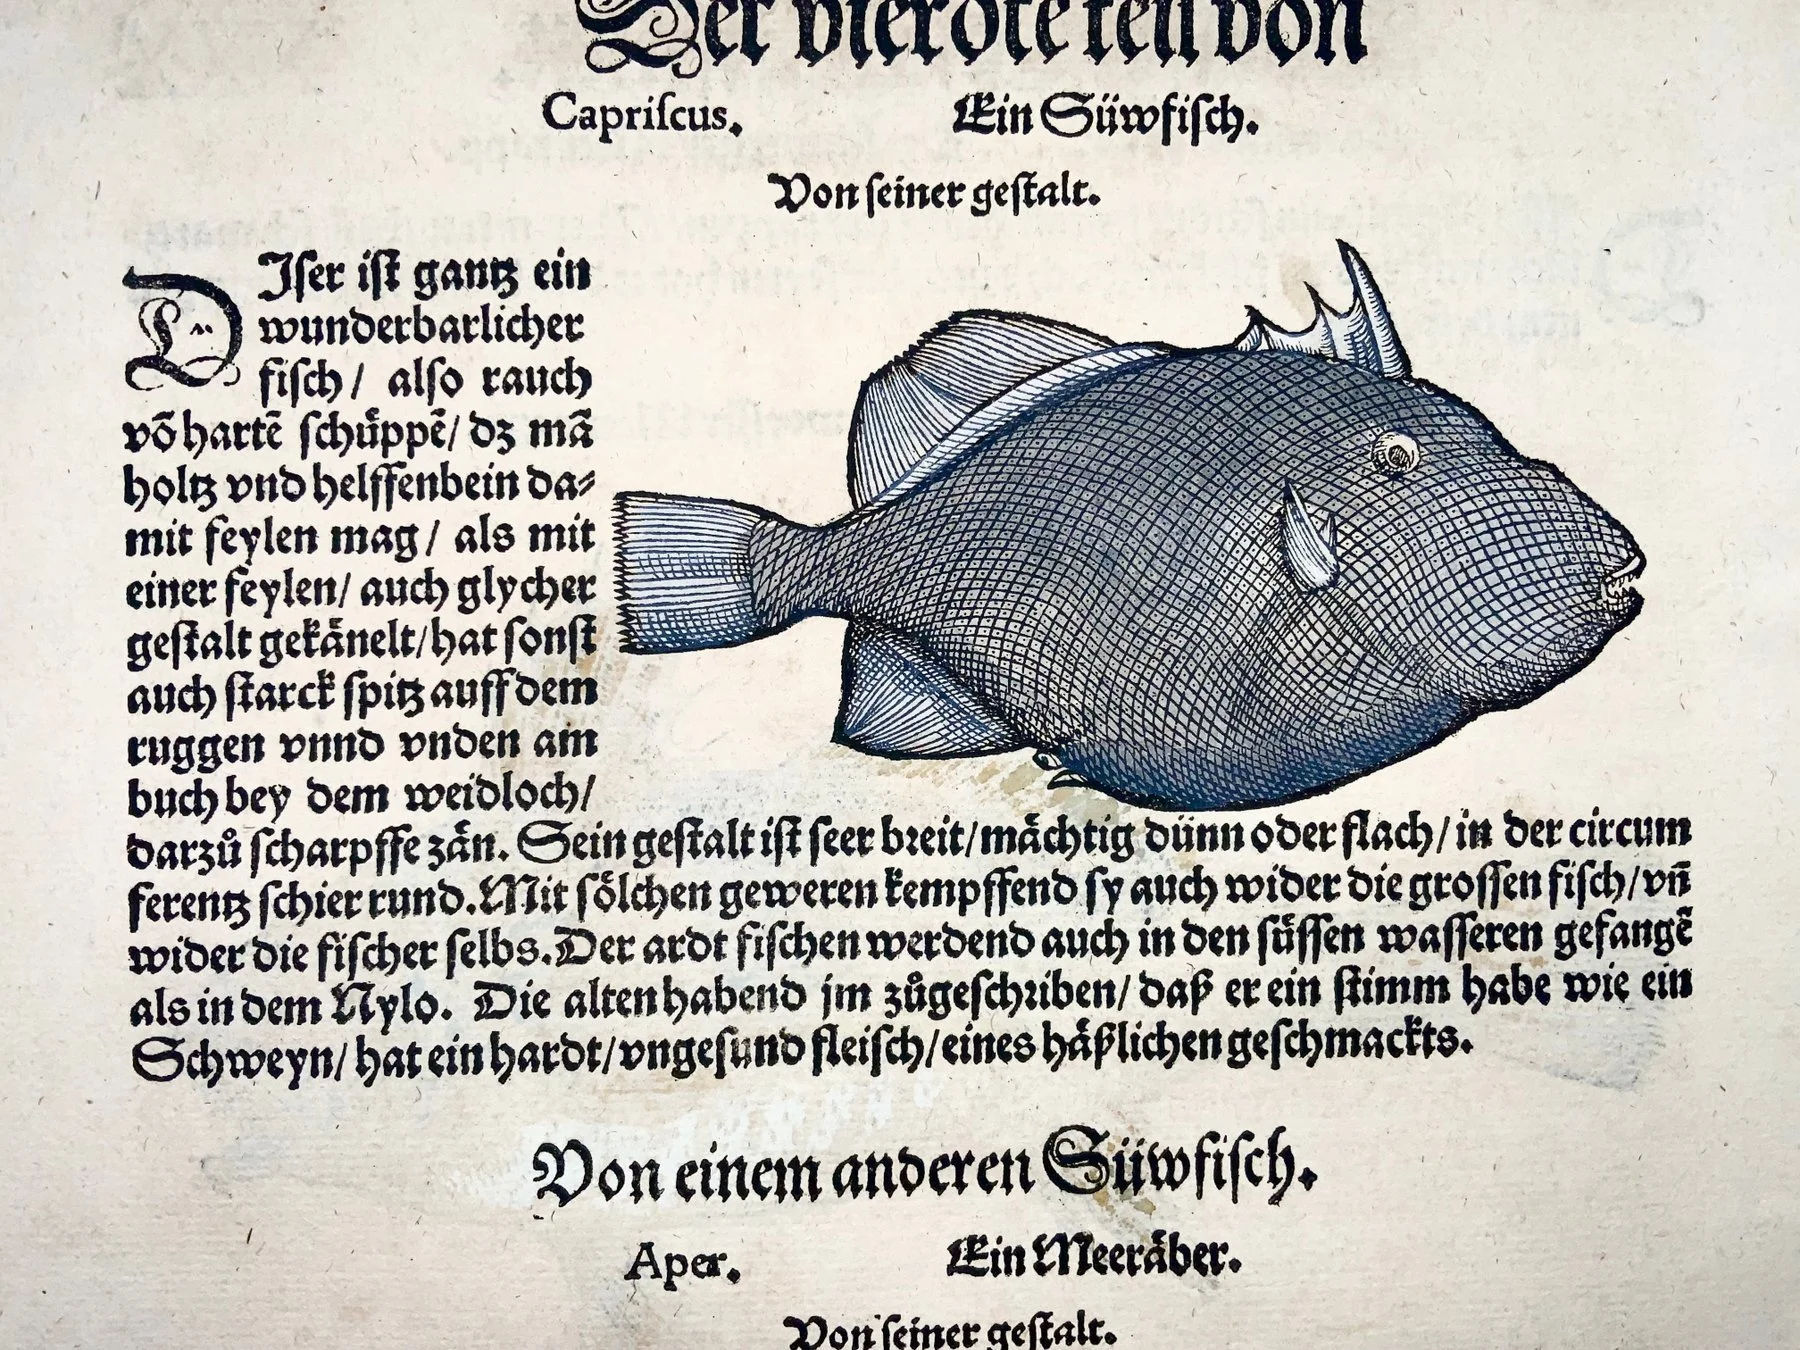 Der vierdte teil von
Capriſcus.
Ein Süwfiſch.
Von ſeiner geſtalt.
DIſer iſt gantz ein
wunderbarlicher
fiſch / also rauch
võ hartẽ ſchuͤppẽ / dz mã
holtz vnd helffenbein da⸗
mit feylen mag / als mit
einer feylen / auch glycher
geſtalt gekaͤnelt / hat ſonſt
auch ſtarck ſpitz auff dem
ruggen vnnd vnden am
buch bey dem weidloch /
darzuͦ ſcharpffe zaͤn. Sein geſtalt iſt ſeer breit / maͤchtig dünn oder flach / in der circum
ferentz ſchier rund. Mit ſoͤlchen geweren kempffend ſy auch wider die groſſen fiſch / vñ
wider die fiſcher ſelbs. Der ardt fiſchen werdend auch in den ſuͤſſen waſſeren gefangẽ
als in dem Nylo. Die alten habend jm zuͦgeſchriben / daß er ein ſtimm habe wie ein
Schweyn / hat ein hardt / vngeſund fleiſch / eines haͤßlichen geſchmackts.
Von einem anderen Süwfiſch.
Aper.
Ein Meeraͤber.
Von ſeiner geſtalt.